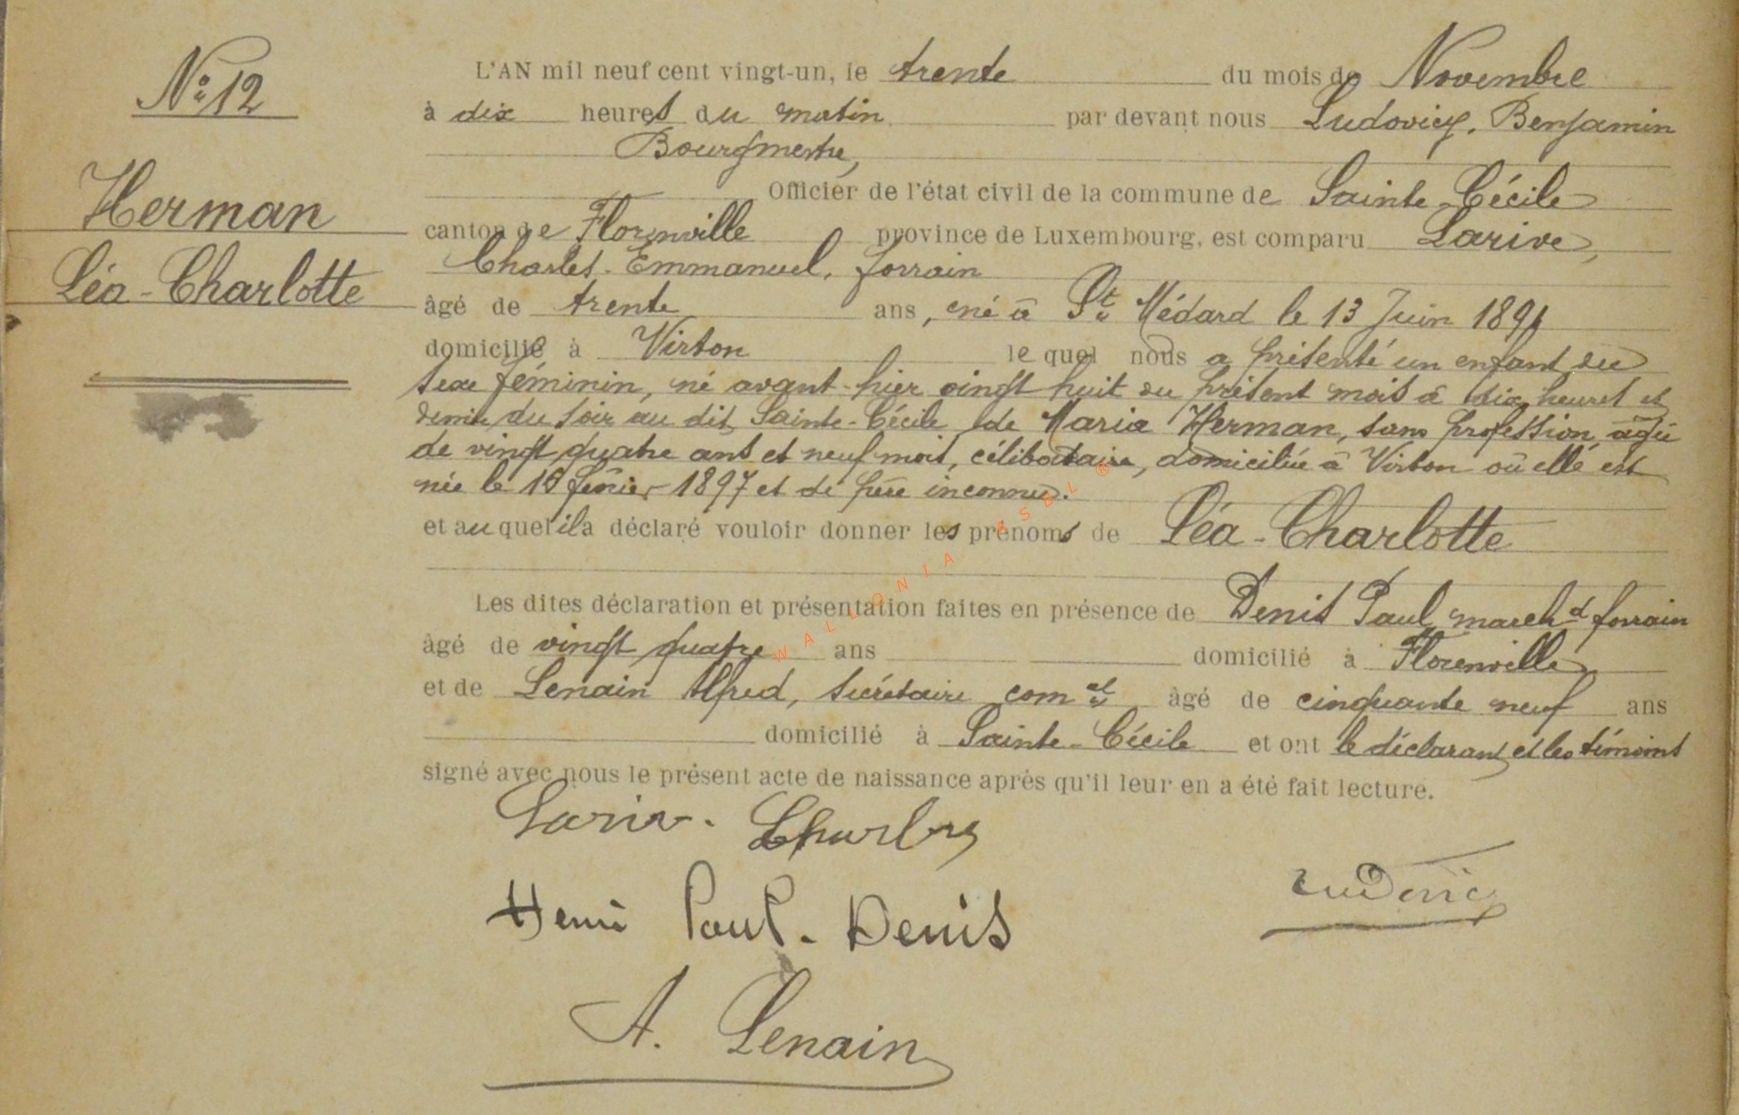 N° 12
Herman
Léa-Charlotte
L'AN mil neuf cent vingt-un, le trente du mois de Novembre
à dix heures du matin par devant nous Ludovicy, Benjamin
Bourgmestre,
Officier de l'état civil de la commune de Sainte-Cécile
canton de Florenville province de Luxembourg, est comparu Larive,
Charles-Emmanuel, forrain
âgé de trente ans, né à St Médard le 13 Juin 1891
domicilié à Virton lequel nous a présenté un enfant du
sexe féminin, né avant-hier vingt huit du présent mois à dix heures et
demie du soir au dit Sainte-Cécile de Maria Herman, sans profession, âgée
de vingt quatre ans et neuf mois, célibataire, domiciliée à Virton où elle est
née le 18 février 1897 et de père inconnu.
et auquel il a déclaré vouloir donner les prénoms de Léa-Charlotte
Les dites déclaration et présentation faites en présence de Denis Paul march d forrain
âgé de vingt quatre ans domicilié à Florenville
et de Lenain Alfred, secrétaire com al âgé de cinquante neuf ans
domicilié à Sainte-Cécile et ont le déclarant et les témoins
signé avec nous le présent acte de naissance après qu'il leur en a été fait lecture.
Larive. Charles
Henri Paul. Denis
Ludovicy
A. Lenain
WALLONIA ASBL ©